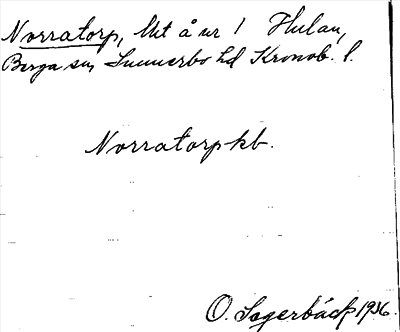 Norratorp, lht å nr 1 Hulan,
Berga sn, Sunnerbo hd Kronob. l.
Norratorp-kb.
O. Sagerbäck 1936.